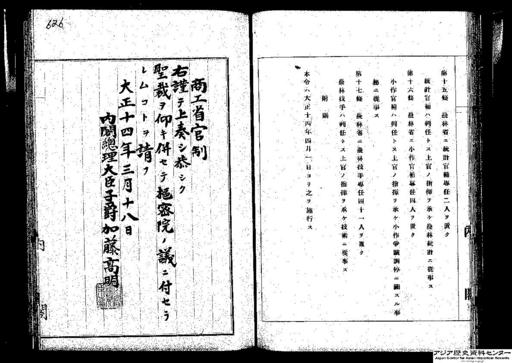 第十五條 農林省ニ統計官補專任二人ヲ置ク
統計官補ハ判任トス上官ノ指揮ヲ承ケ農林統計ニ從事ス
第十六條 農林省ニ小作官補專任四人ヲ置ク
小作官補ハ判任トス上官ノ指揮ヲ承ケ小作爭議調停ニ關スル事
務ニ從事ス
第十七條 農林省ニ農林技手專任四十一人ヲ置ク
農林技手ハ判任トス上官ノ指揮ヲ承ケ技術ニ從事ス
附則
本令ハ大正十四年四月一日ヨリ之ヲ施行ス
內閣
626
商工省官制
右謹テ上奏シ恭シク
聖裁ヲ仰キ併セテ樞密院ノ議ニ付セラ
レムコトヲ請フ
大正十四年三月十八日
內閣總理大臣子爵加藤高明
內閣
アジア歴史資料センター
Japan Center for Asian Historical Records